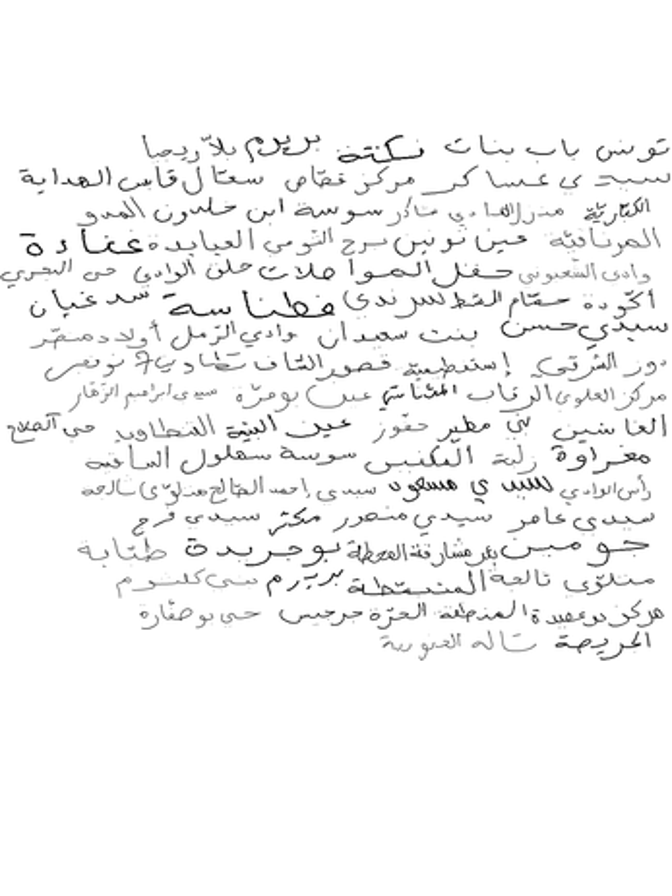 تونس باب بنات نكتة بريرم بلاّ ريجيا
سيدي عساكر مركز غصّاص سعتال قابس الهداية
الكبّاريّة منزل الهادي شاكر سوسة ابن خلدون
المرناقيّة عين تونين برج التومي العبايدة
وادي الشعبوني حفل المواصلات حلق الوادي حي البحري
أكّودة حمّام الشط لسرندي فطناسة سد غبان
سيدي حسن بنت سعيدان وادي الرّمل أولاد منصر
دوز الشرقي إستفطيميّة قصور السّاف تطاوين 7 نوفمبر
مركز العلوي الرقاب عين بومرّة سيدي ابراهيم الزهّار
العاشين بني مطير حفوز عين البنيّة القطاوي حي الصلاح
مغراوة زلبة المكنين سوسة سهلول الساقية
رأس الوادي سيدي مسعود سيدي احمد الصّالح منلوّى سالجة
سيدي عامر سيدي منصور مكثر سيدي فرج
جومين بئر مشارقة المحطة بوجريدة طبّابة
منلوّى تالجة المنبسطة بريرم بني كلثوم
مركز بوعصيدة المنطقة الحرّة جرجيس حي بوصفّارة
الجريصة تالة الجنوبية